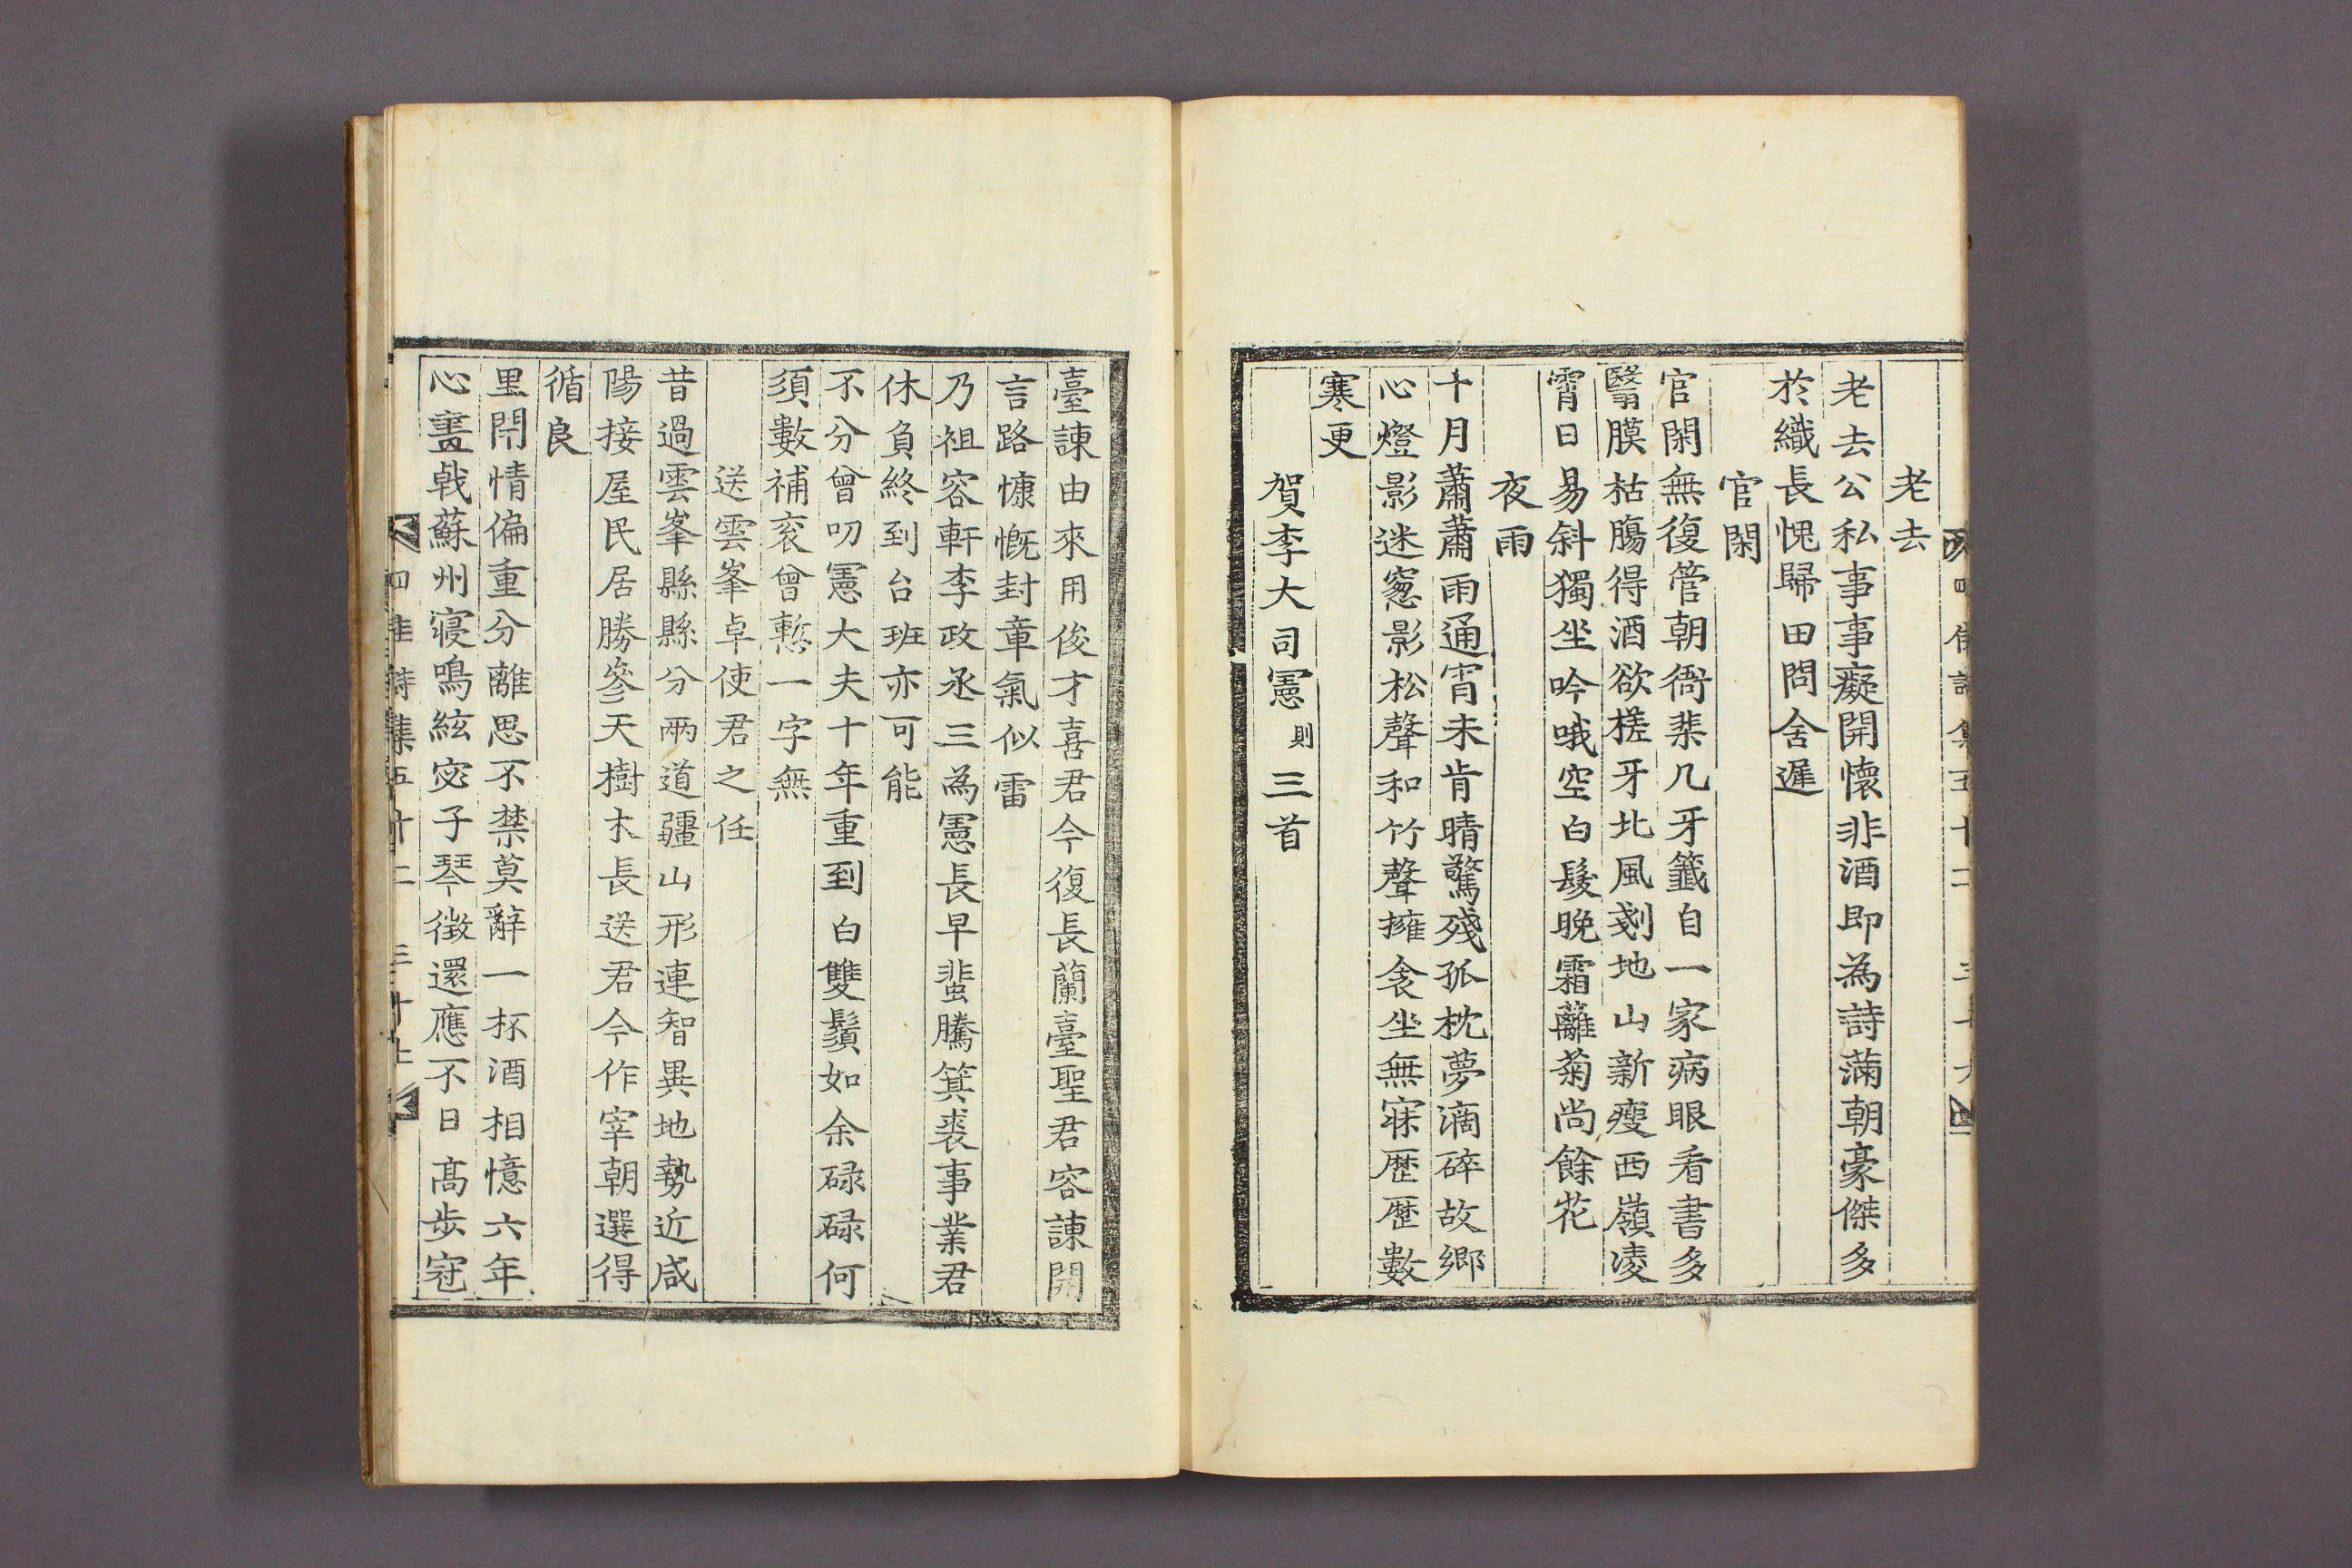 老去
老去公私事事癡開懷非酒即為詩滿朝豪傑多
於織長愧歸田問舍遲
官閑
官閑無復管朝衙棐几牙籤自一家病眼看書多
翳膜枯腸得酒欲槎牙北風剗地山新瘦西嶺凌
霄日易斜獨坐吟哦空白髮晚霜籬菊尚餘花
夜雨
十月蕭蕭雨通宵未肯晴驚殘孤枕夢滴碎故鄉
心燈影迷窓影松聲和竹聲擁衾坐無寐歷歷數
寒更
賀李大司憲則三首
臺諫由來用俊才喜君今復長蘭臺聖君容諫開
言路慷慨封章氣似雷
乃祖容軒李政丞三為憲長早蜚騰箕裘事業君
休負終到台班亦可能
不分曾叨憲大夫十年重到白雙鬚如余碌碌何
須數補衮曾慙一字無
送雲峯卓使君之任
昔過雲峯縣縣分兩道疆山形連智異地勢近咸
陽接屋民居勝參天樹木長送君今作宰朝選得
循良
里閈情偏重分離思不禁莫辭一杯酒相憶六年
心畫戟蘇州寢鳴絃宓子琴徵還應不日高步冠
四佳詩集五十二 三十七